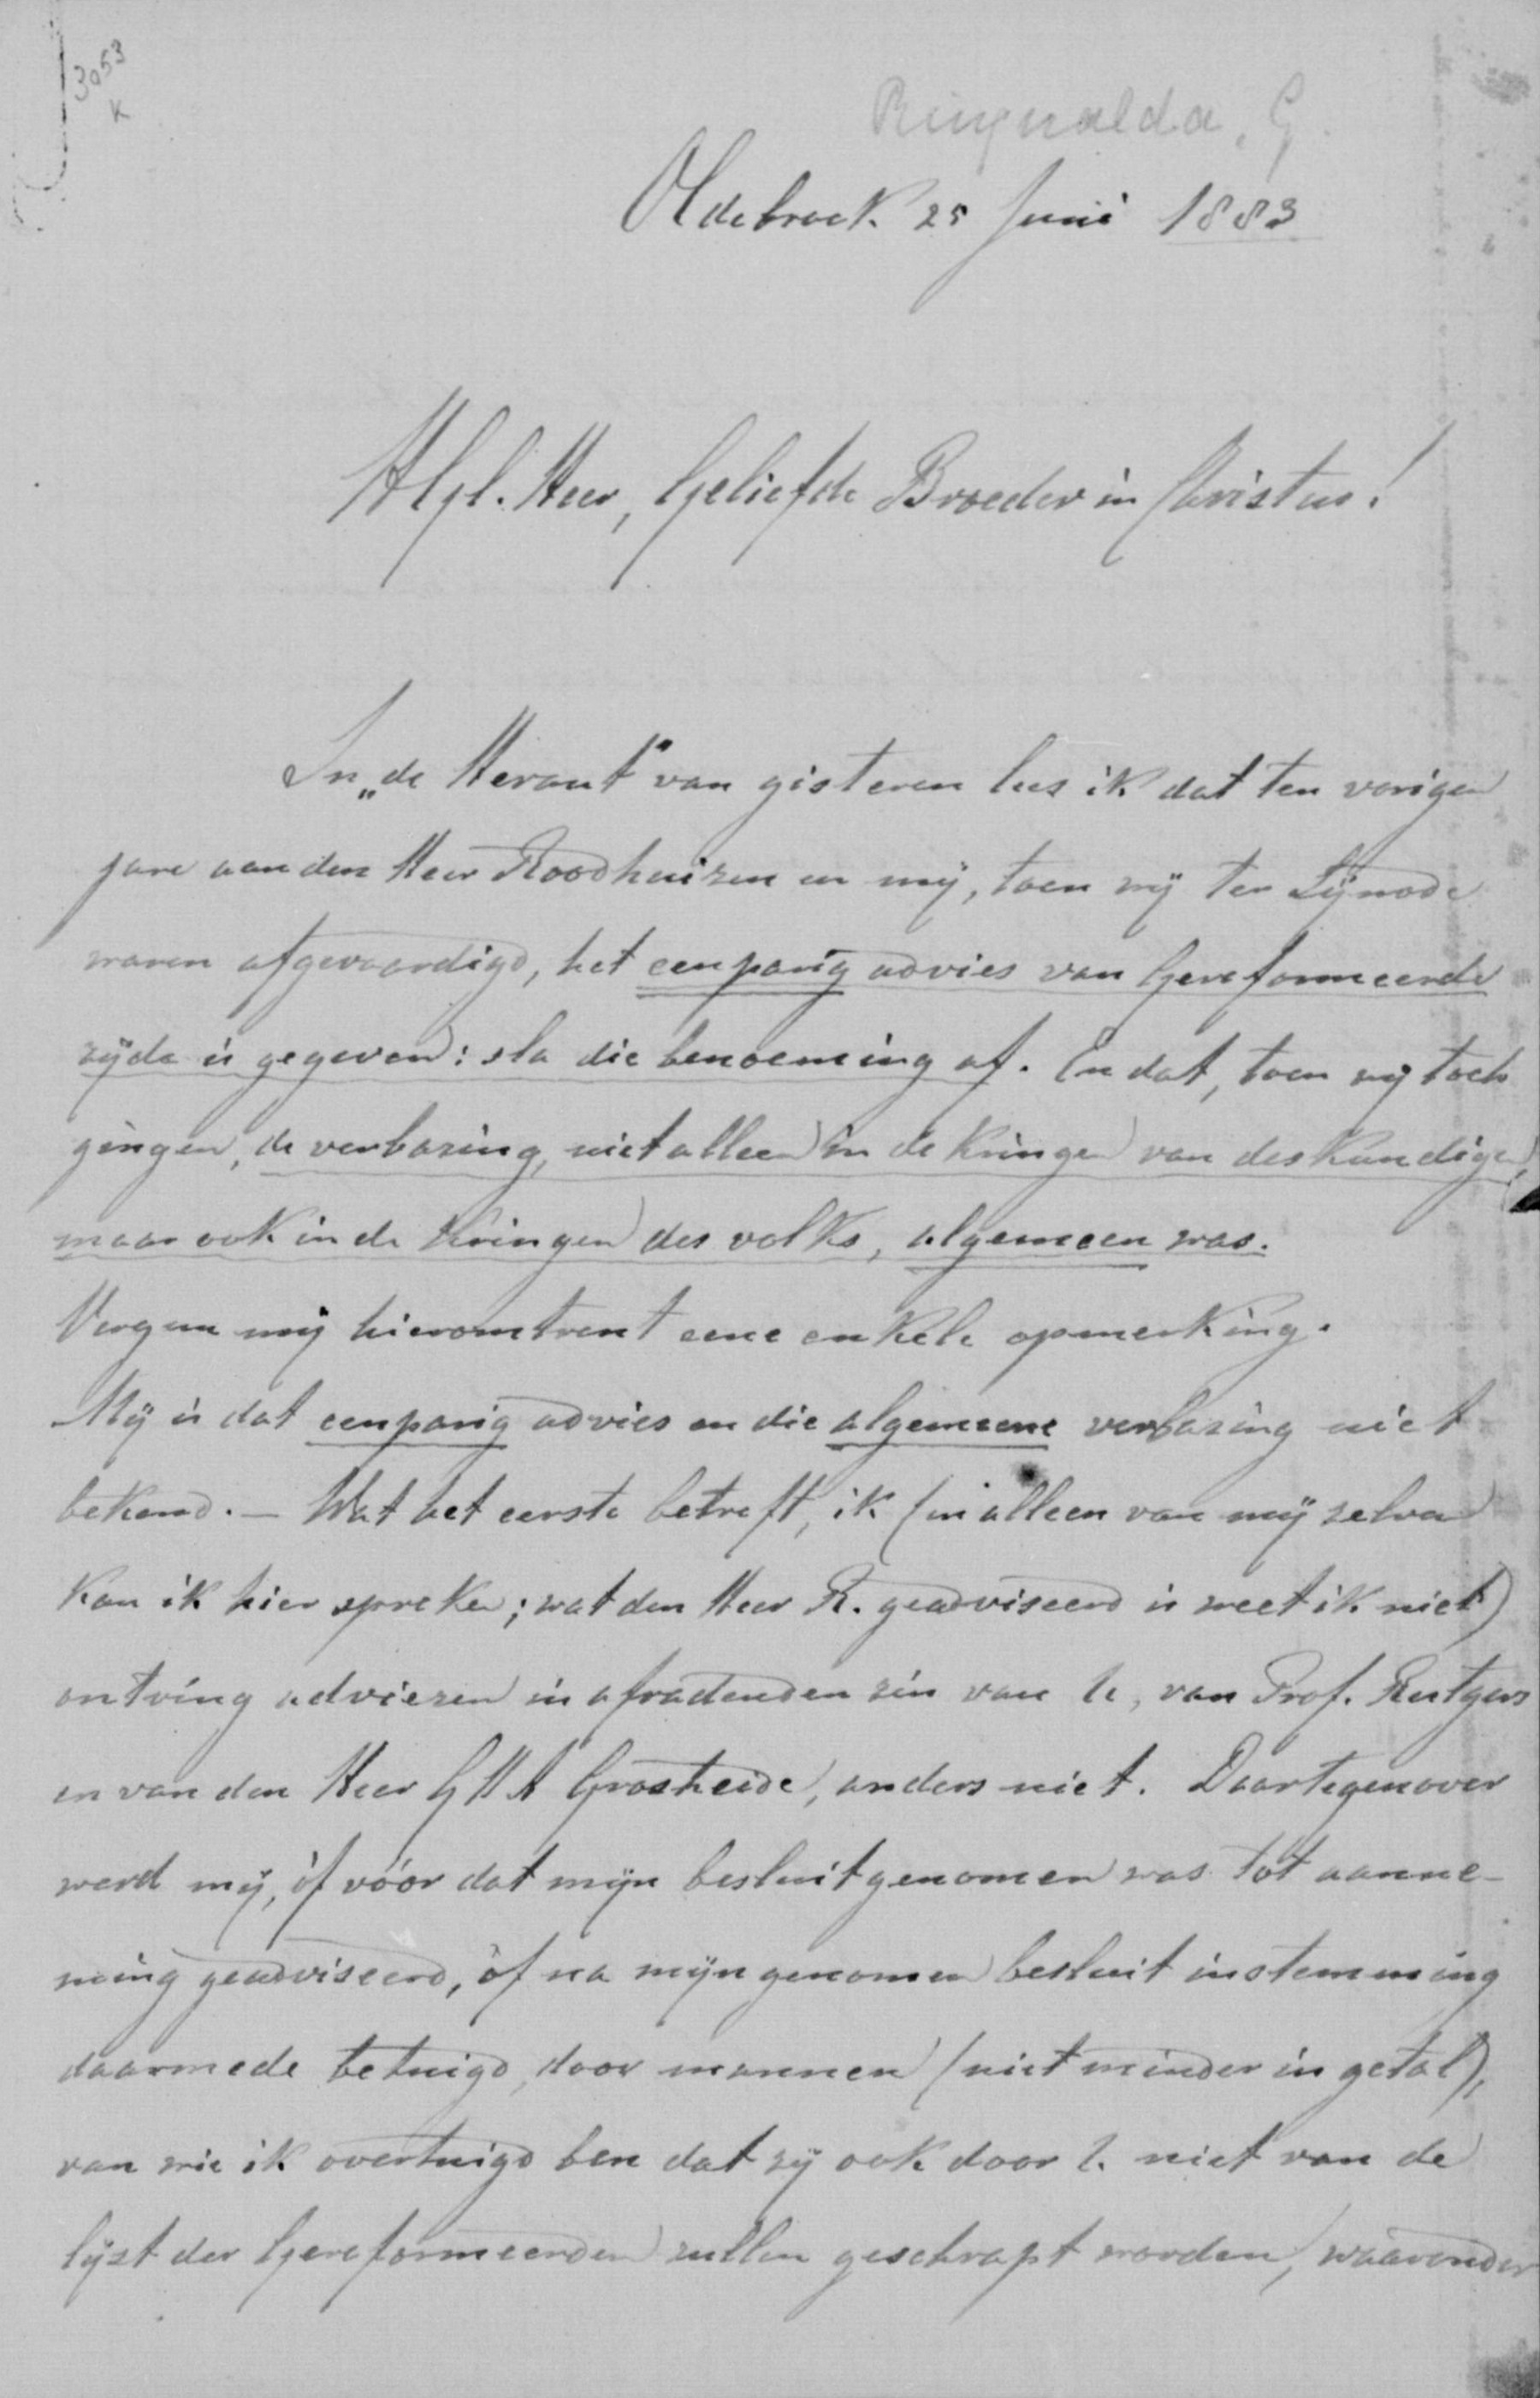 3053
K
Ringnalda, G.
Oldebroek 25 Juni 1883
HGel. Heer, Geliefde Broeder in Christus!
In „de Heraut" van gisteren lees ik dat ten vorigen
jare aan den Heer Roodhuizen en mij, toen wij ter Synode
waren afgevaardigd, het eenparig advies van Gereformeerde
zijde is gegeven: sla die benoeming af. En dat, toen wij toch
gingen, de verbazing, niet alleen in de kringen van deskundigen,
maar ook in de kringen des volks, algemeen was.
Vergun mij hieromtrent eene enkele opmerking.
Mij is dat eenparig advies en die algemeene verbazing niet
bekend. — Wat het eerste betreft, ik (en alleen van mij zelven
kan ik hier spreken; wat den Heer R. geadviseerd is weet ik niet)
ontving adviezen in afradenden zin van U, van Prof. Rutgers
en van den Heer GHA Grosheide, anders niet. Daartegenover
werd mij, òf vóór dat mijn besluit genomen was tot aanne-
ming geadviseerd, òf na mijn genomen besluit instemming
daarmede betuigd, door mannen (niet minder in getal),
van wie ik overtuigd ben dat zij ook door U niet van de
lijst der Gereformeerden zullen geschrapt worden, waaronder